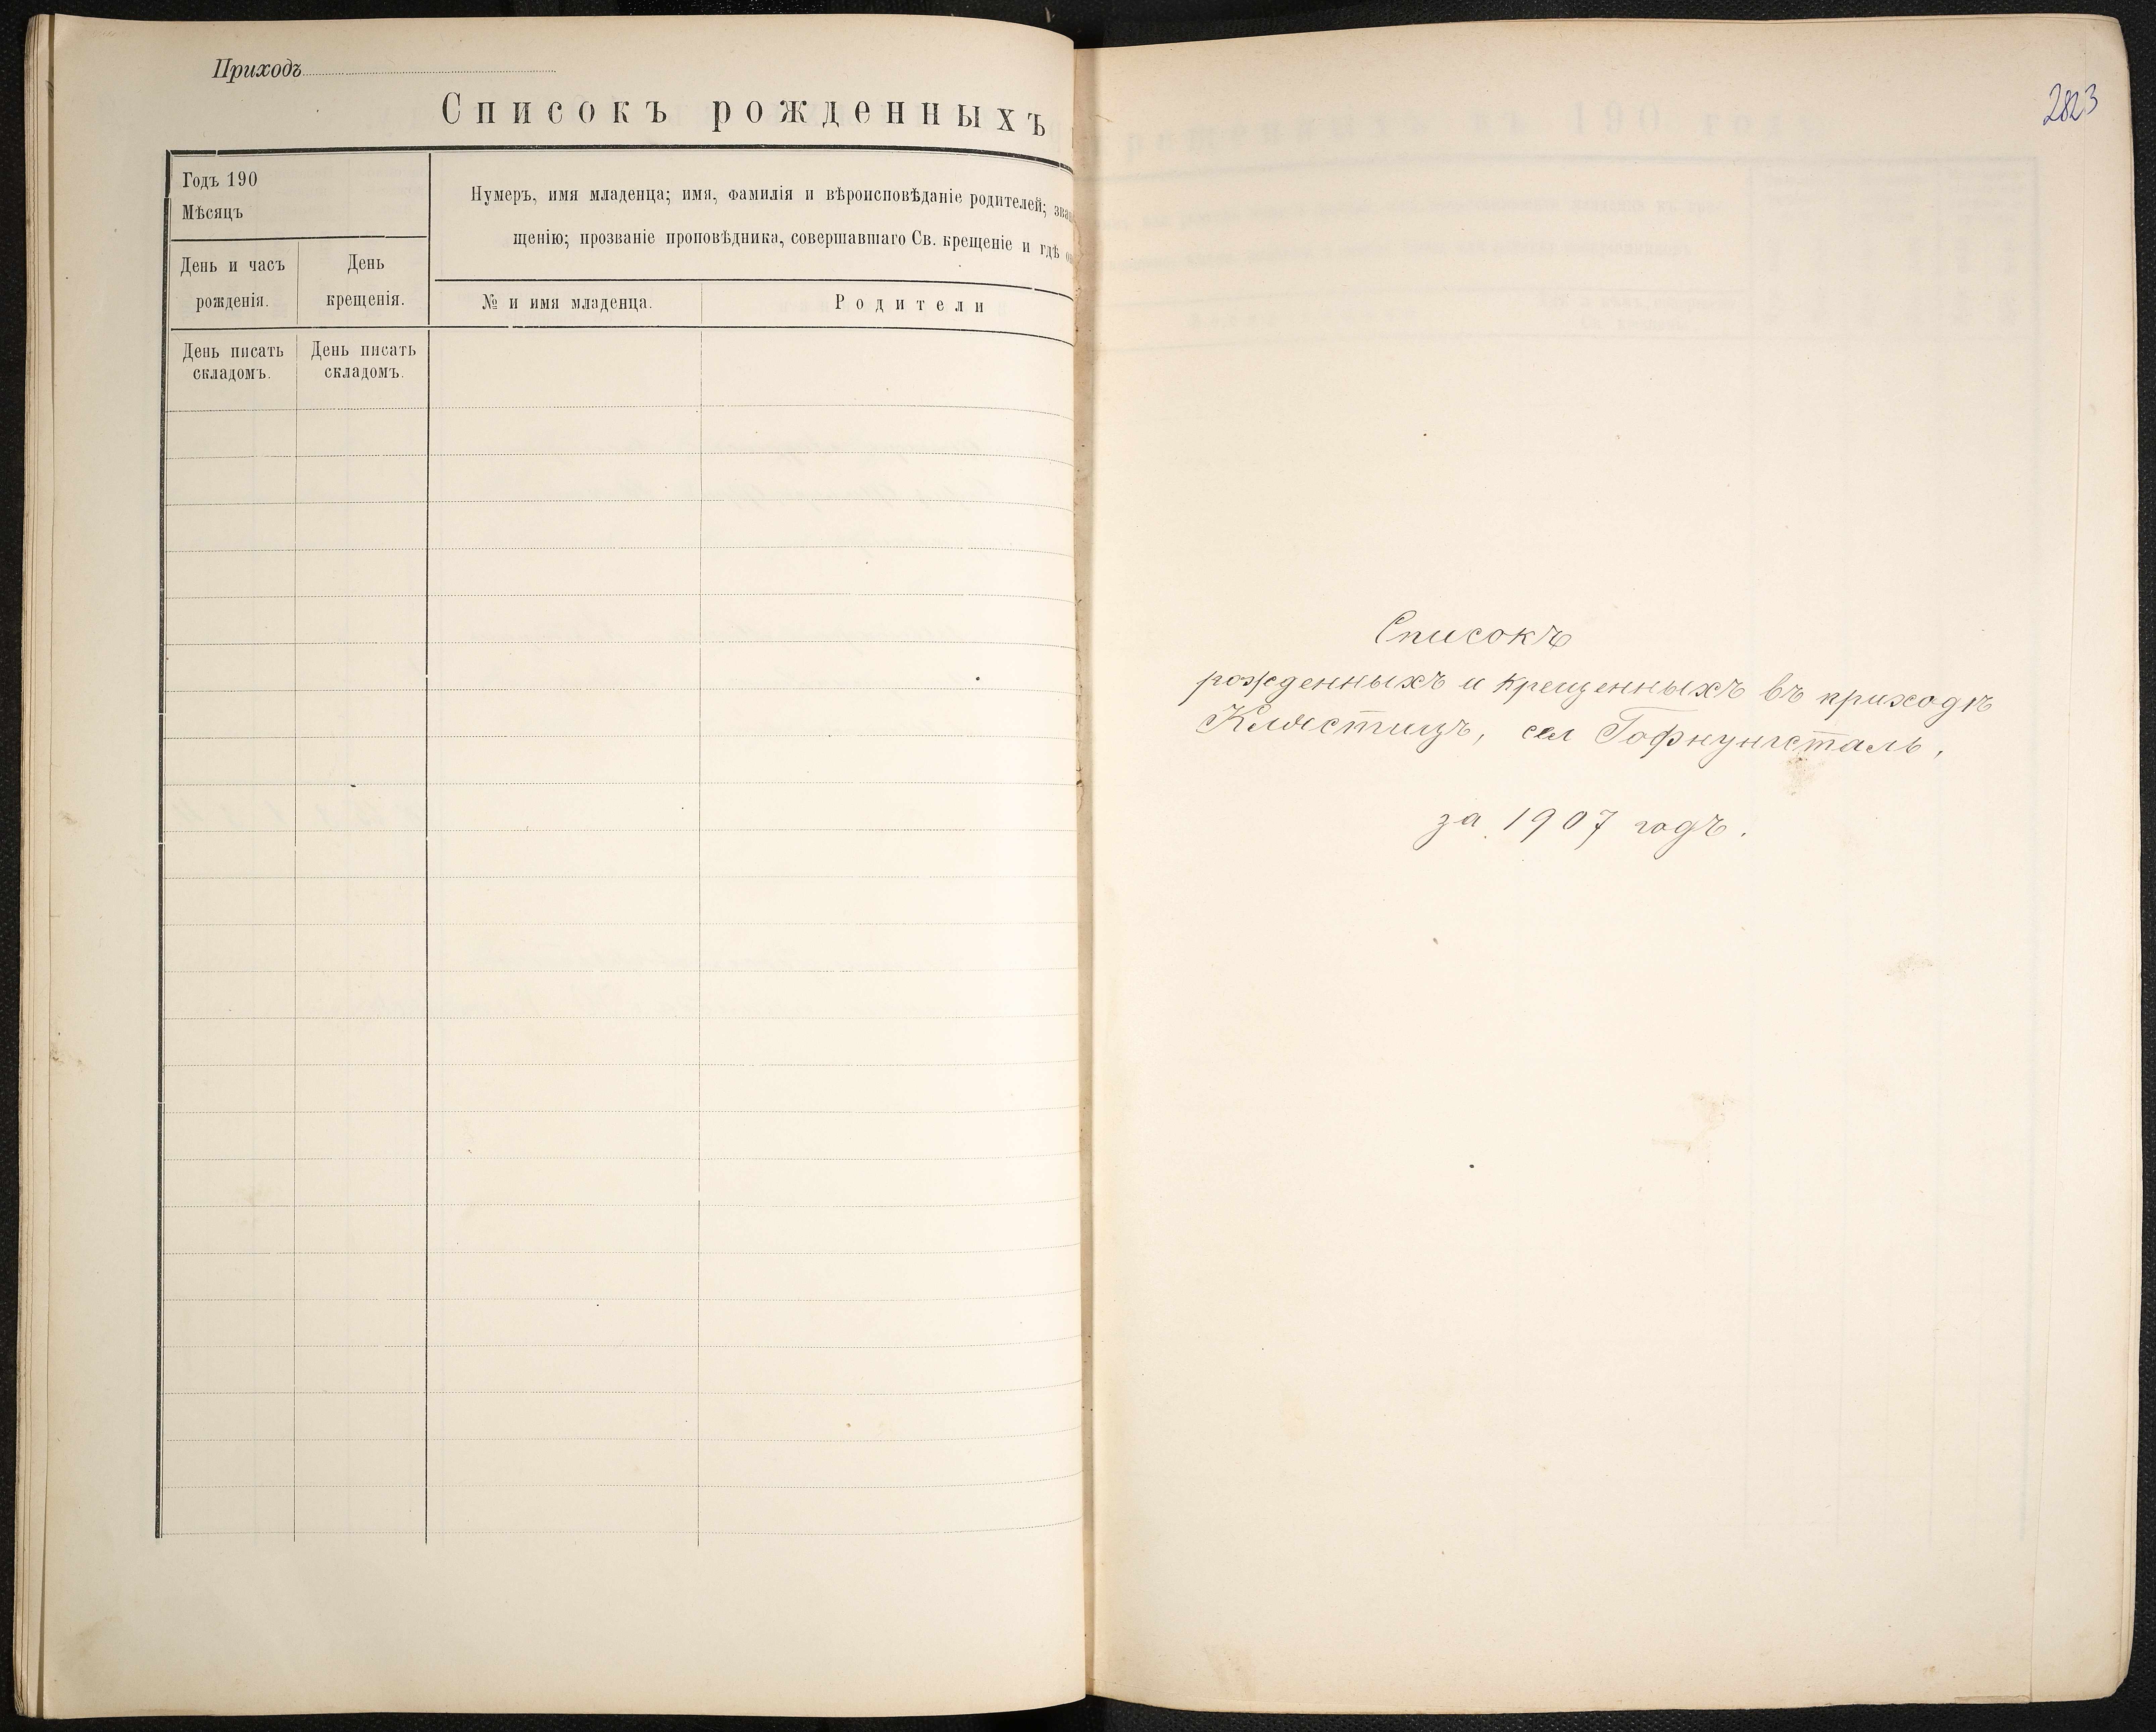 Приходъ
Списокъ рожденныхъ
Годъ 190
Мѣсяцъ
Нумеръ, имя младенца; имя, фамилія и вѣроисповѣданіе родителей; зва
щенію; прозваніе проповѣдника, совершавшаго Св. крещеніе и гдѣ
День и часъ
рожденія.
День
крещенія.
№ и имя младенца.
Родители
День писать
складомъ.
День писать
складомъ.
2823
Списокъ
рожденныхъ и крещенныхъ въ приходѣ
Клястицъ, сел Гофнунгсталь,
за 1907 годъ.